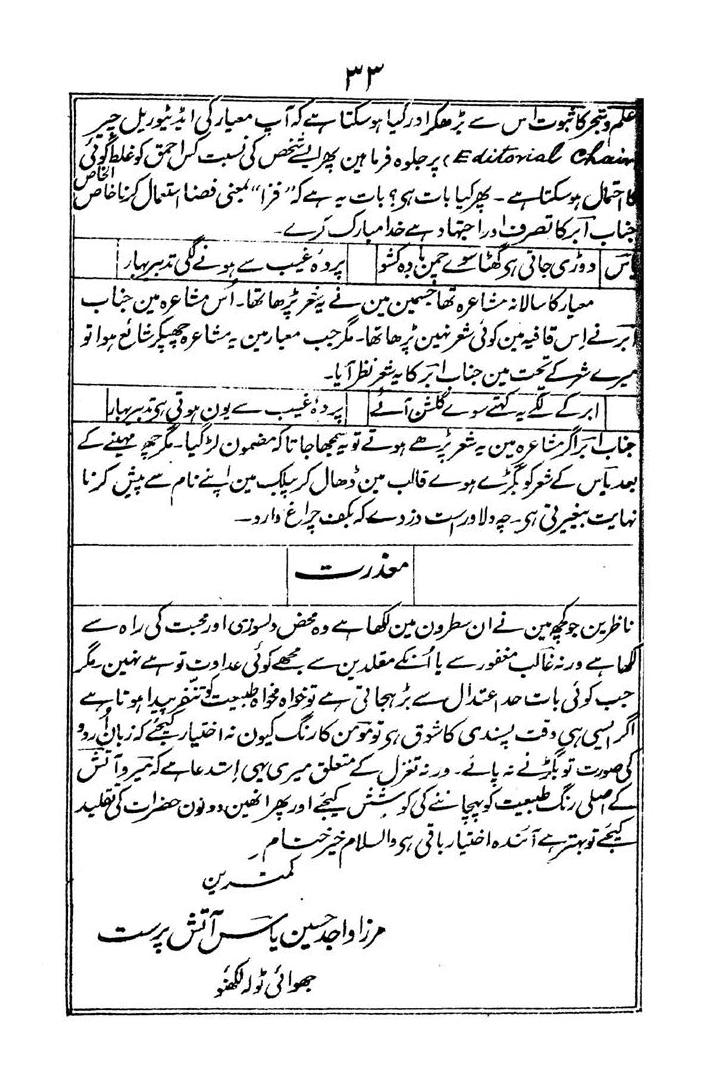 ۳۳
علم و تبحر کا ثبوت اس سے بڑھکر اور کیا ہو سکتا ہے کہ آپ معیار کی اڈیٹیوریل چیر
(Editorial Chair) پر جلوہ فرما ہین پھر ایسے شخص کی نسبت کس احمق کو غلط گوئی
کا احتمال ہو سکتا ہے ۔ پھر کیا بات ہی؟ بات یہ ہے کہ "فزا" بمعنی فضا استعمال کرنا خاص الخاص
جناب ابر کا تصرف اور اجتہاد ہے خدا مبارک کرے ۔
یاس دوڑی جاتی ہی گھٹا سوے چمن بادہ کشو پردۂ غیب سے ہونے لگی تدبیر بہار
معیار کا سالانہ مشاعرہ تھا جسمین مین نے یہ شعر پڑھا تھا ۔ اُس مشاعرہ مین جناب
ابر نے اِس قافیہ مین کوئی شعر نہین پڑھا تھا ۔ مگر جب معیار مین یہ مشاعرہ چھپکر شائع ہوا تو
میرے شعر کے تحت مین جناب ابر کا یہ شعر نظر آیا ۔
ابر کے لگے یہ کہتے سوے گلشن آئے پردۂ غیب سے یون ہوتی ہی تدبیر بہار
جناب ابر اگر مشاعرہ مین یہ شعر پڑھے ہوتے تو یہ سمجھا جاتا کہ مضمون لڑ گیا ۔ مگر چھ مہینے کے
بعد یاس کے شعر کو بگڑے ہوے قالب مین ڈھال کر پبلک مین اپنے نام سے پیش کرنا
نہایت بیغیرتی ہی ۔ چہ دلاور ست دزدے کہ بکف چراغ دارد ۔
معذرت
ناظرین جو کچھ مین نے ان سطرون مین لکھا ہے وہ محض دلسوزی اور محبت کی راہ سے
لکھا ہے ورنہ غالب مغفور سے یا اُنکے مقلدین سے مجھے کوئی عداوت تو ہے نہین ۔ مگر
جب کوئی بات حد اعتدال سے بڑہجاتی ہے تو خواہ مخواہ طبیعت کو تنفر پیدا ہوتا ہے
اگر ایسی ہی دقت پسندی کا شوق ہی تو مومن کا رنگ کیون نہ اختیار کیجئے کہ زبان اُردو
کی صورت تو بگڑنے نہ پائے ۔ ورنہ تغزل کے متعلق میری یہی اِستدعا ہے کہ میر و آتش
کے اصلی رنگ طبیعت کو پہچاننے کی کوشش کیجئے اور پھر انھین دونون حضرات کی تقلید
کیجئے تو بہتر ہے آئندہ اختیار باقی ہی والسلام خیر ختام ۔
کمترین
مرزا واجد حسین یاس آتش پرست
جھوائی ٹولہ لکھنؤ